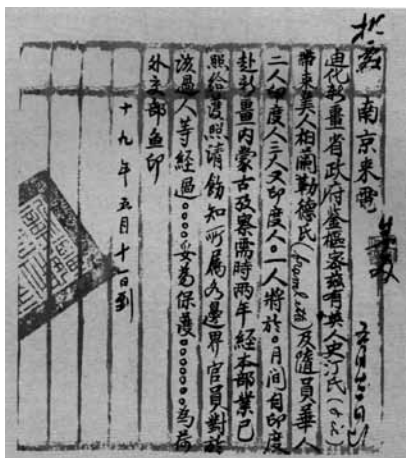 南京来電
迪化新疆省政府鉴極密茲有英人史汀氏
帶來美人柏蘭勒德氏及隨員華人
二人印度人三人又印度人○一人將於○月間自印度
赴新疆内蒙古攷察需時兩年經本部業已
照給護照請飭知所屬各邊界官員對於
該過人等經過○○○○妥為保護○○○○○○為荷
外交部魚印
十九年五月十一日到